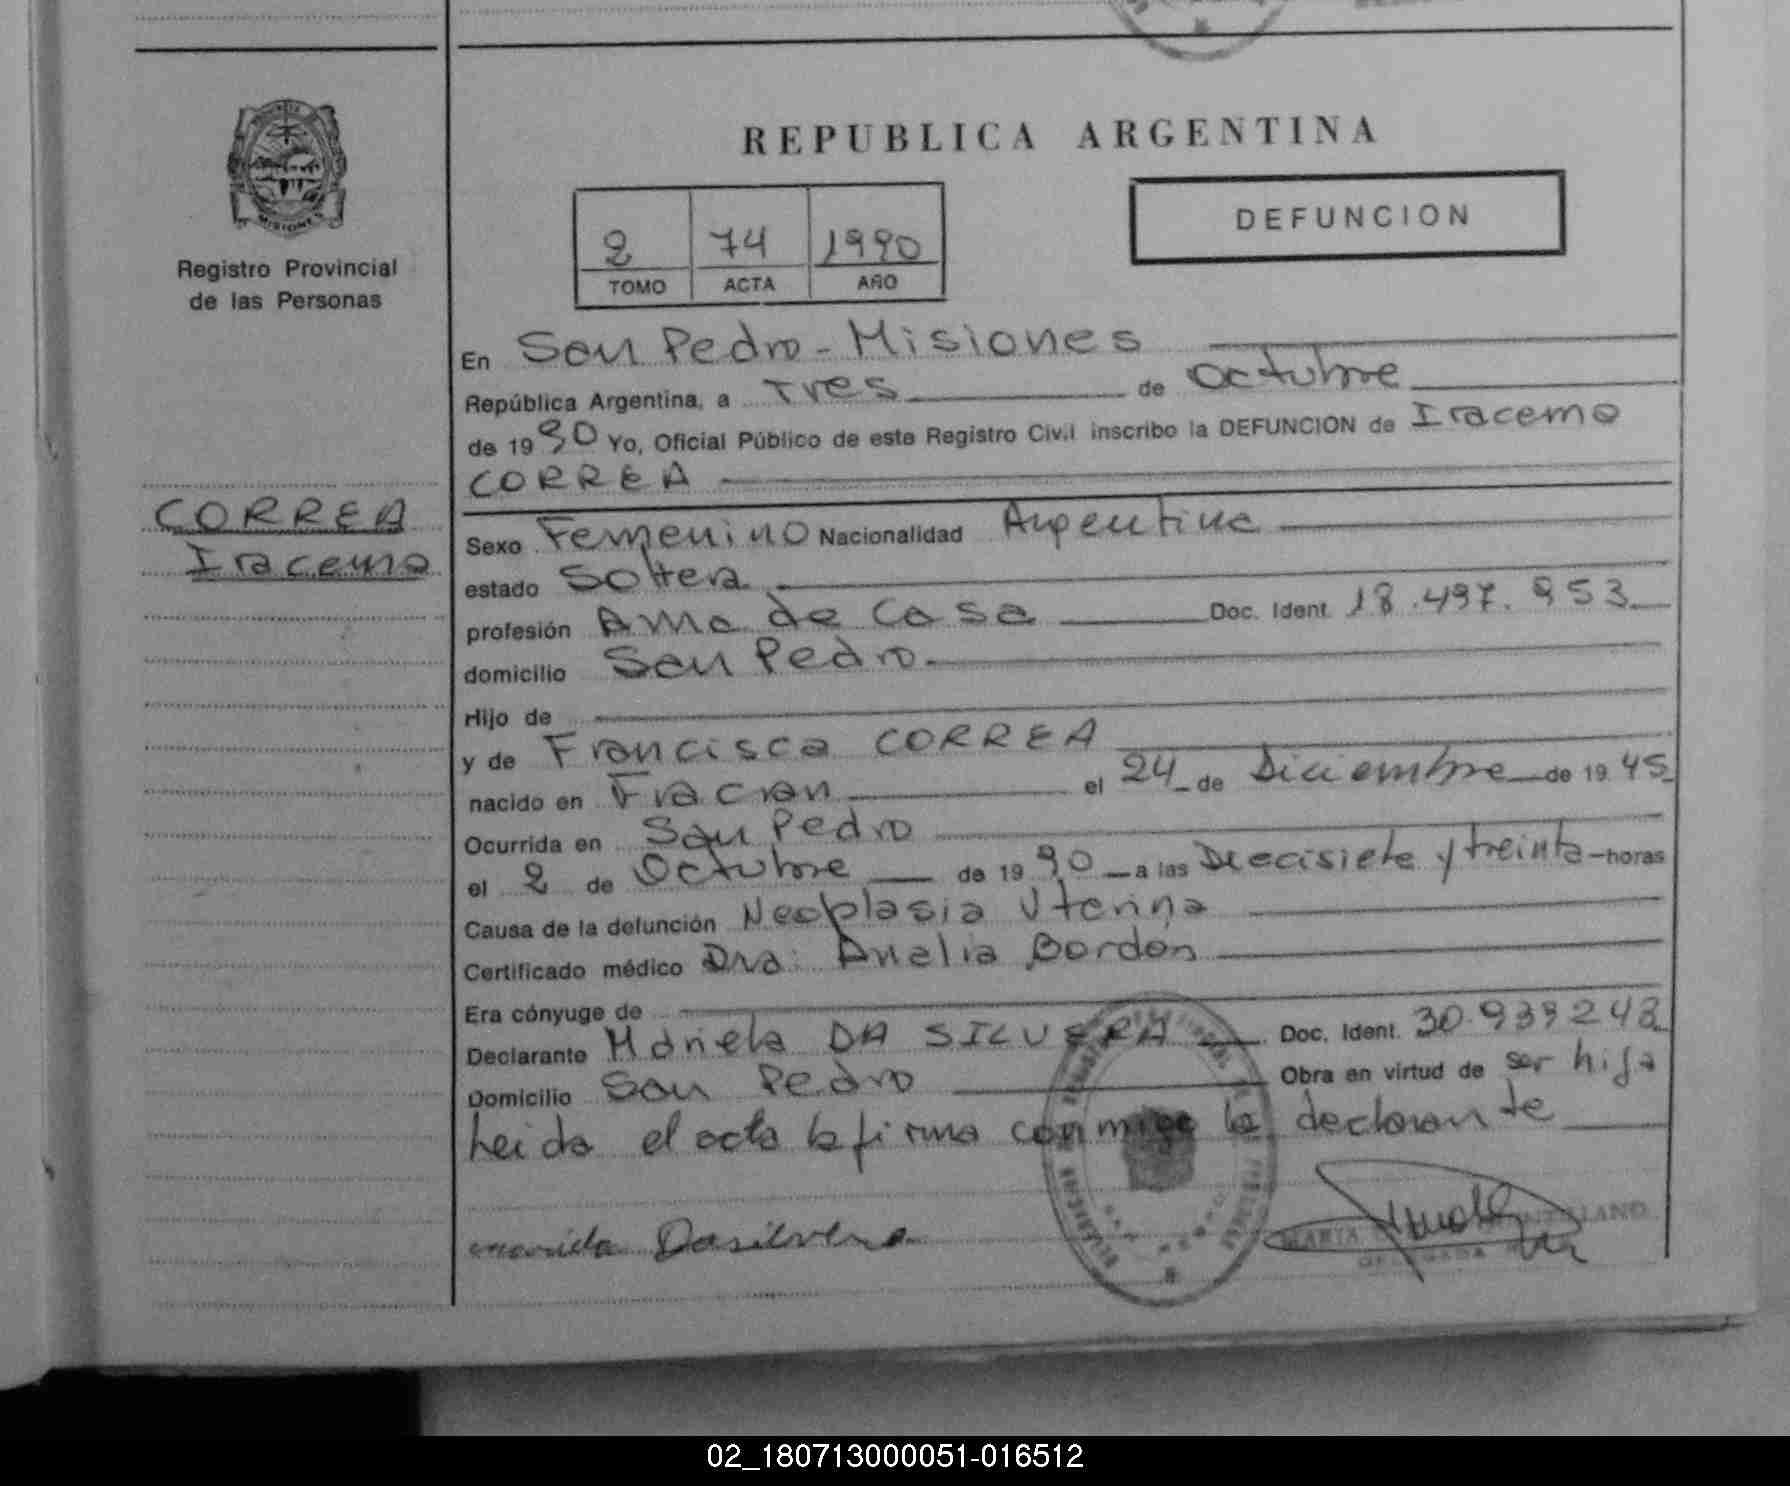 REPUBLICA ARGENTINA
DEFUNCION
2 74 1990
TOMO ACTA AÑO
Registro Provincial
de las Personas
CORREA
Iracema
En San Pedro - Misiones
República Argentina, a Tres de Octubre
de 1990 Yo, Oficial Público de este Registro Civil inscribo la DEFUNCION de Iracema
CORREA
Sexo Femenino Nacionalidad Argentina
estado Soltera
profesión Ama de Casa Doc. Ident. 18.497.953
domicilio San Pedro
Hijo de
y de Francisca CORREA
nacido en Fracran el 24 de Diciembre de 1945
Ocurrida en San Pedro
el 2 de Octubre de 1990 a las Diecisiete y treinta horas
Causa de la defunción Neoplasia Uterina
Certificado médico Dra: Analia Bordón
Era cónyuge de
Declarante Mariela DA SILVERA Doc. Ident. 30.939248
Domicilio San Pedro Obra en virtud de ser hija
Leida el acta la firma conmigo la declarante
Dasilvera
MARIA
02_180713000051-016512